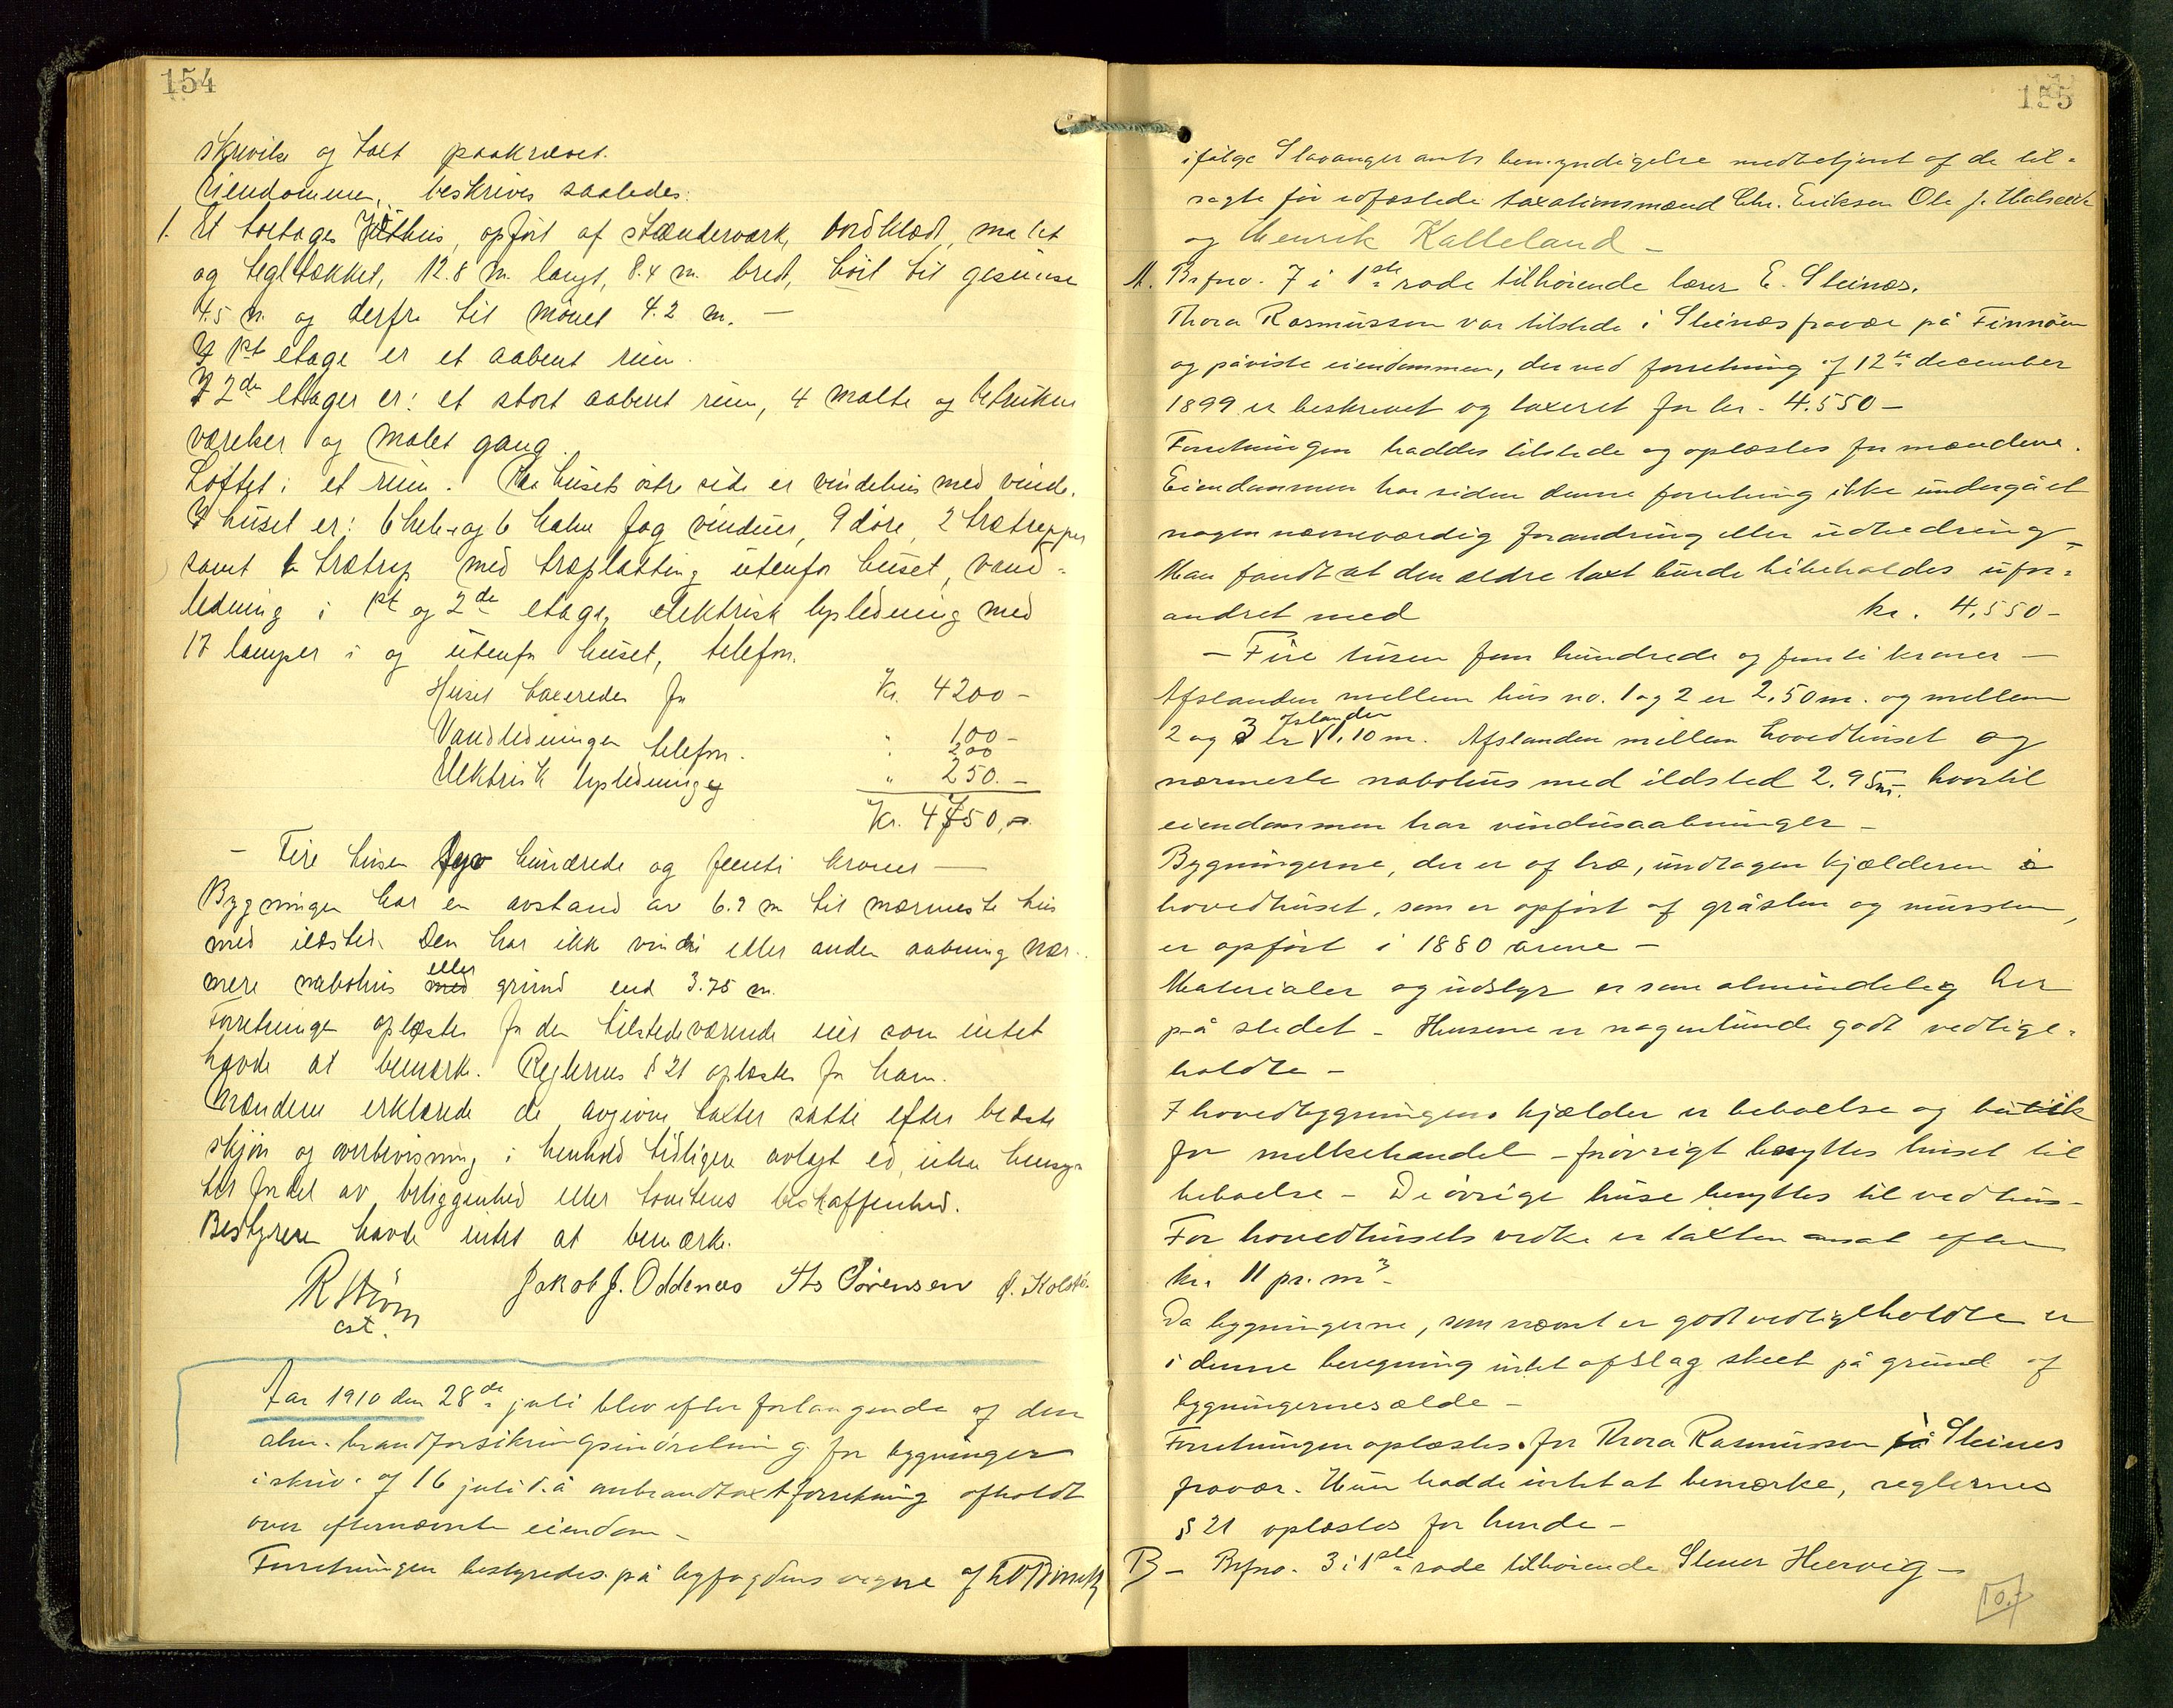 154
skrivelse og taxt paakrævet.
Eiendommen beskrives saaledes:
1. Et toetages Sjøhus, opført af stænderværk, bordklædt, malet
og tegltækket, 12.8 m. langt, 8.4 m. bredt, høit til gesimse
4.5 m. og derfra til mønet 4.2 m. —
I 1ste etage er et aabent rum.
I 2den etager er: et stort aabent rum, 4 malte og betrukne
værelser og malet gang.
Loftet: et rum. Paa husets østre side er vindehus med vinde.
I huset er: 6 hele og 6 halve fag vinduer, 9 døre, 2 trætrapper
samt 1 trætrap med træplatting utenfor huset, vand-
ledning i 1ste og 2den etage, elektrisk lysledning med
17 lamper i og utenfor huset, telefon.
Huset taxeredes for Kr. 4200 -
Vandledningen " 100 -
telefon. 200
Elektrisk lysledning " 250. -
Kr. 4750,-
- Fire tusen syv hundrede og femti kroner —
Bygningen har en avstand av 6.2 m til nærmeste hus
med ildsted. Den har ikke vindu eller anden aabning nær-
mere nabohus eller grund end 3.75 m.
Forretningen oplæstes for den tilstedeværende eier som intet
havde at bemærke. Reglernes § 21 oplæstes for ham.
Mændene erklærede de avgivne taxter satte efter bedste
skjøn og overbevisning i henhold tidligere avlagt ed, uten hensyn
til fordel av beliggenhed eller tomtens beskaffenhed.
Bestyreren havde intet at bemærke.
R Strøm Jakob J. Oddenæs Ths Sørensen
cst.
Aar 1910 den 28de juli blev efter forlangende af den
alm. brandforsikringsindretning for bygninger
i skriv. af 16 juli d.å ombrandtaxtforretning afholdt
over efternævnte eiendom -
Forretningen bestyredes på byfogdens vegne af
155
ifølge Stavanger amts bemyndigelse medbetjent af de til-
sagte før edfæstede taxationsmænd Chr. Eriksen Ole J. Halseth
og Henrik Kalleland -
A. Brfno. 7 i 1ste rode tilhørende lærer E. Steinæs.
Thora Rasmussen var tilstede i Steinæs fravær på Finnøen
og påviste eiendommen, der ved forretning af 12te december
1899 er beskrevet og taxeret for kr. 4.550 -
Forretningen haddes tilstede og oplæstes for mændene.
Eiendommen har siden denne forretning ikke undergået
nogen nævneværdig forandring eller udbedring -
Man fandt at den ældre taxt burde bibeholdes ufor-
andret med kr. 4.550 -
- Fire tusen fem hundrede og femti kroner -
Afstanden mellem hus no. 1 og 2 er 2.50 m. og mellem
2 og 3 er 1.10 m. Afstanden mellem hovedhuset og
nærmeste nabohus med ildsted 2.95 m. hvortil
eiendommen har vindusaabninger -
Bygningerne, der er af træ, undtagen kjælderen i
hovedhuset, som er opført af gråsten og mursten,
er opført i 1880 årene -
Materialer og udstyr er som almindelig her
på stedet - Husene er nogenlunde godt vedlige-
holdte -
I hovedbygningens kjælder er beboelse og butik
for melkehandel - forøvrigt benyttes huset til
beboelse - De øvrige huse benyttes til vedhus -
For hovedhusets vedk. er taxten ansat efter
kr. 11 pr. m³ -
Da bygningerne, som nævnt er godt vedligeholdte er
i denne beregning intet afslag skeet på grund af
bygningernes ælde -
Forretningen oplæstes for Thora Rasmussen i Steines
fravær. Hun hadde intet at bemærke, reglernes
§ 21 oplæstes for hende -
B - Brfno. 3 i 1ste rode tilhørende Stener Heervig -